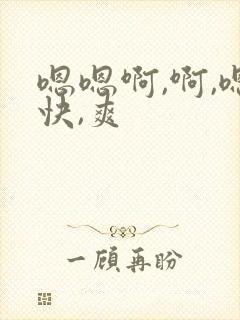 嗯嗯啊,啊,嗯
快,爽
一顾再盼